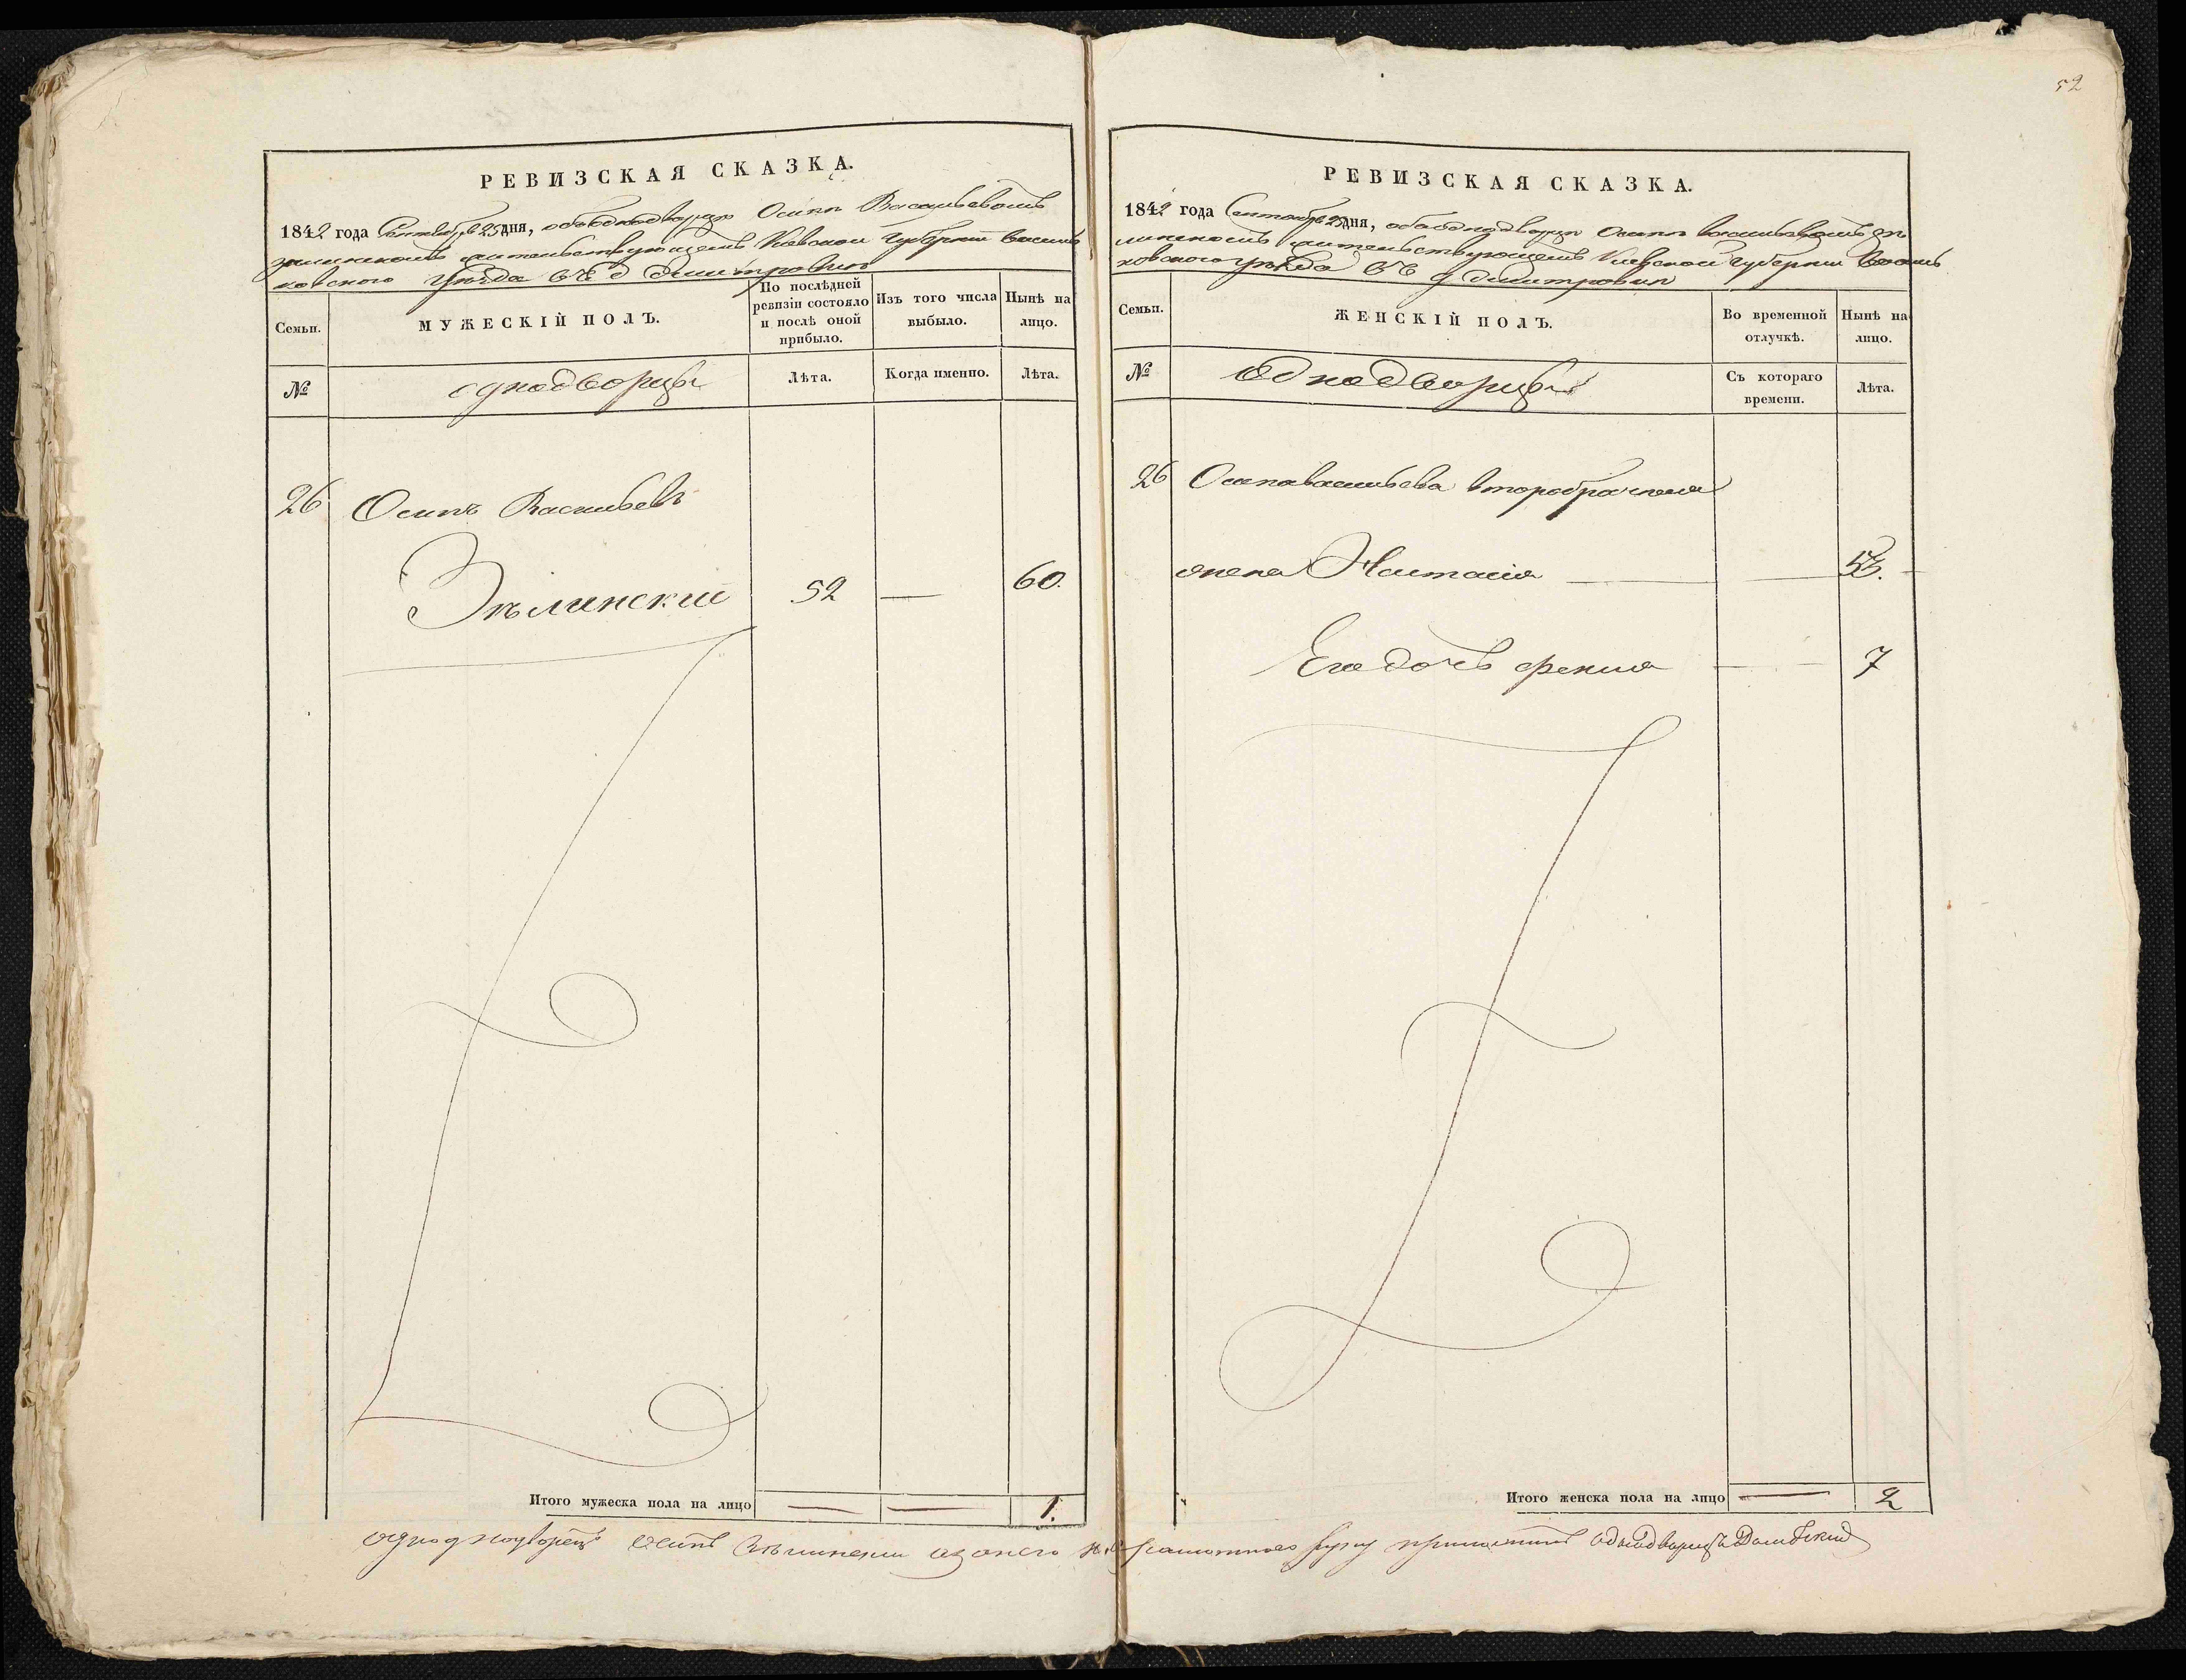 52
РЕВИЗСКАЯ СКАЗКА.
1842 года Сентября 25 дня, объ однодворце Осипе Васильевомъ
Зелинскомъ жительствующемъ Киевской Губернии Василь
ковского уезда въ д Дмитровки
Семьи.
МУЖЕСКІЙ ПОЛЪ.
По послѣдней ревизіи состояло и послѣ оной прибыло.
Изъ того числа выбыло.
Нынѣ на лицо.
№
однодворцы
Лѣта.
Когда именно.
Лѣта.
26 Осипъ Васильевъ
Зѣлинский 52 — 60.
Итого мужеска пола на лицо — — 1.
РЕВИЗСКАЯ СКАЗКА.
1842 года Сентября 25 дня, объ однодворце Осипе Васильевомъ Зѣ
линскомъ жительствующемъ Киевской Губернии Василь
ковского уезда въ д Дмитровки
Семьи.
ЖЕНСКІЙ ПОЛЪ.
Во временной отлучкѣ.
Нынѣ на лицо.
№
Однодворцы
Съ котораго времени.
Лѣта.
26 Осипа Васильева второбрачная
жена Настасия — — 53.
Его дочь — — 7
Итого женска пола на лицо — 2
однодворецъ Осипъ Зѣлинский а за него неграмотного руку приложилъ однодворецъ